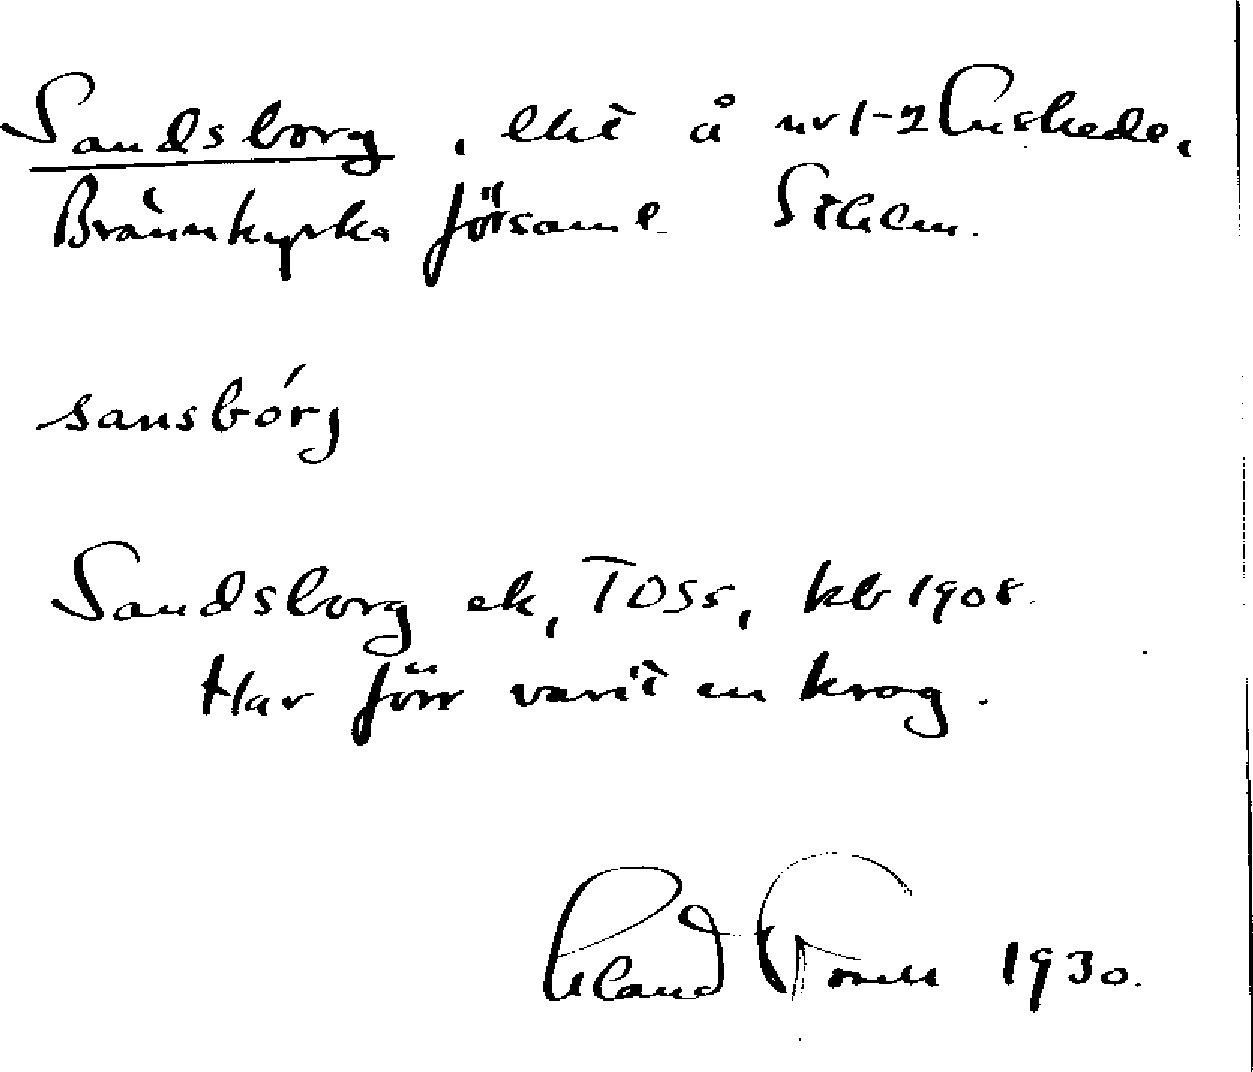 Sandsborg, lht å nr 1-2 Enskede,
Brännkyrka församl. Sthlm.
sansbórg
Sandsborg ek, TOSs, kb 1908.
Har förr varit en krog.
Erland 1930.